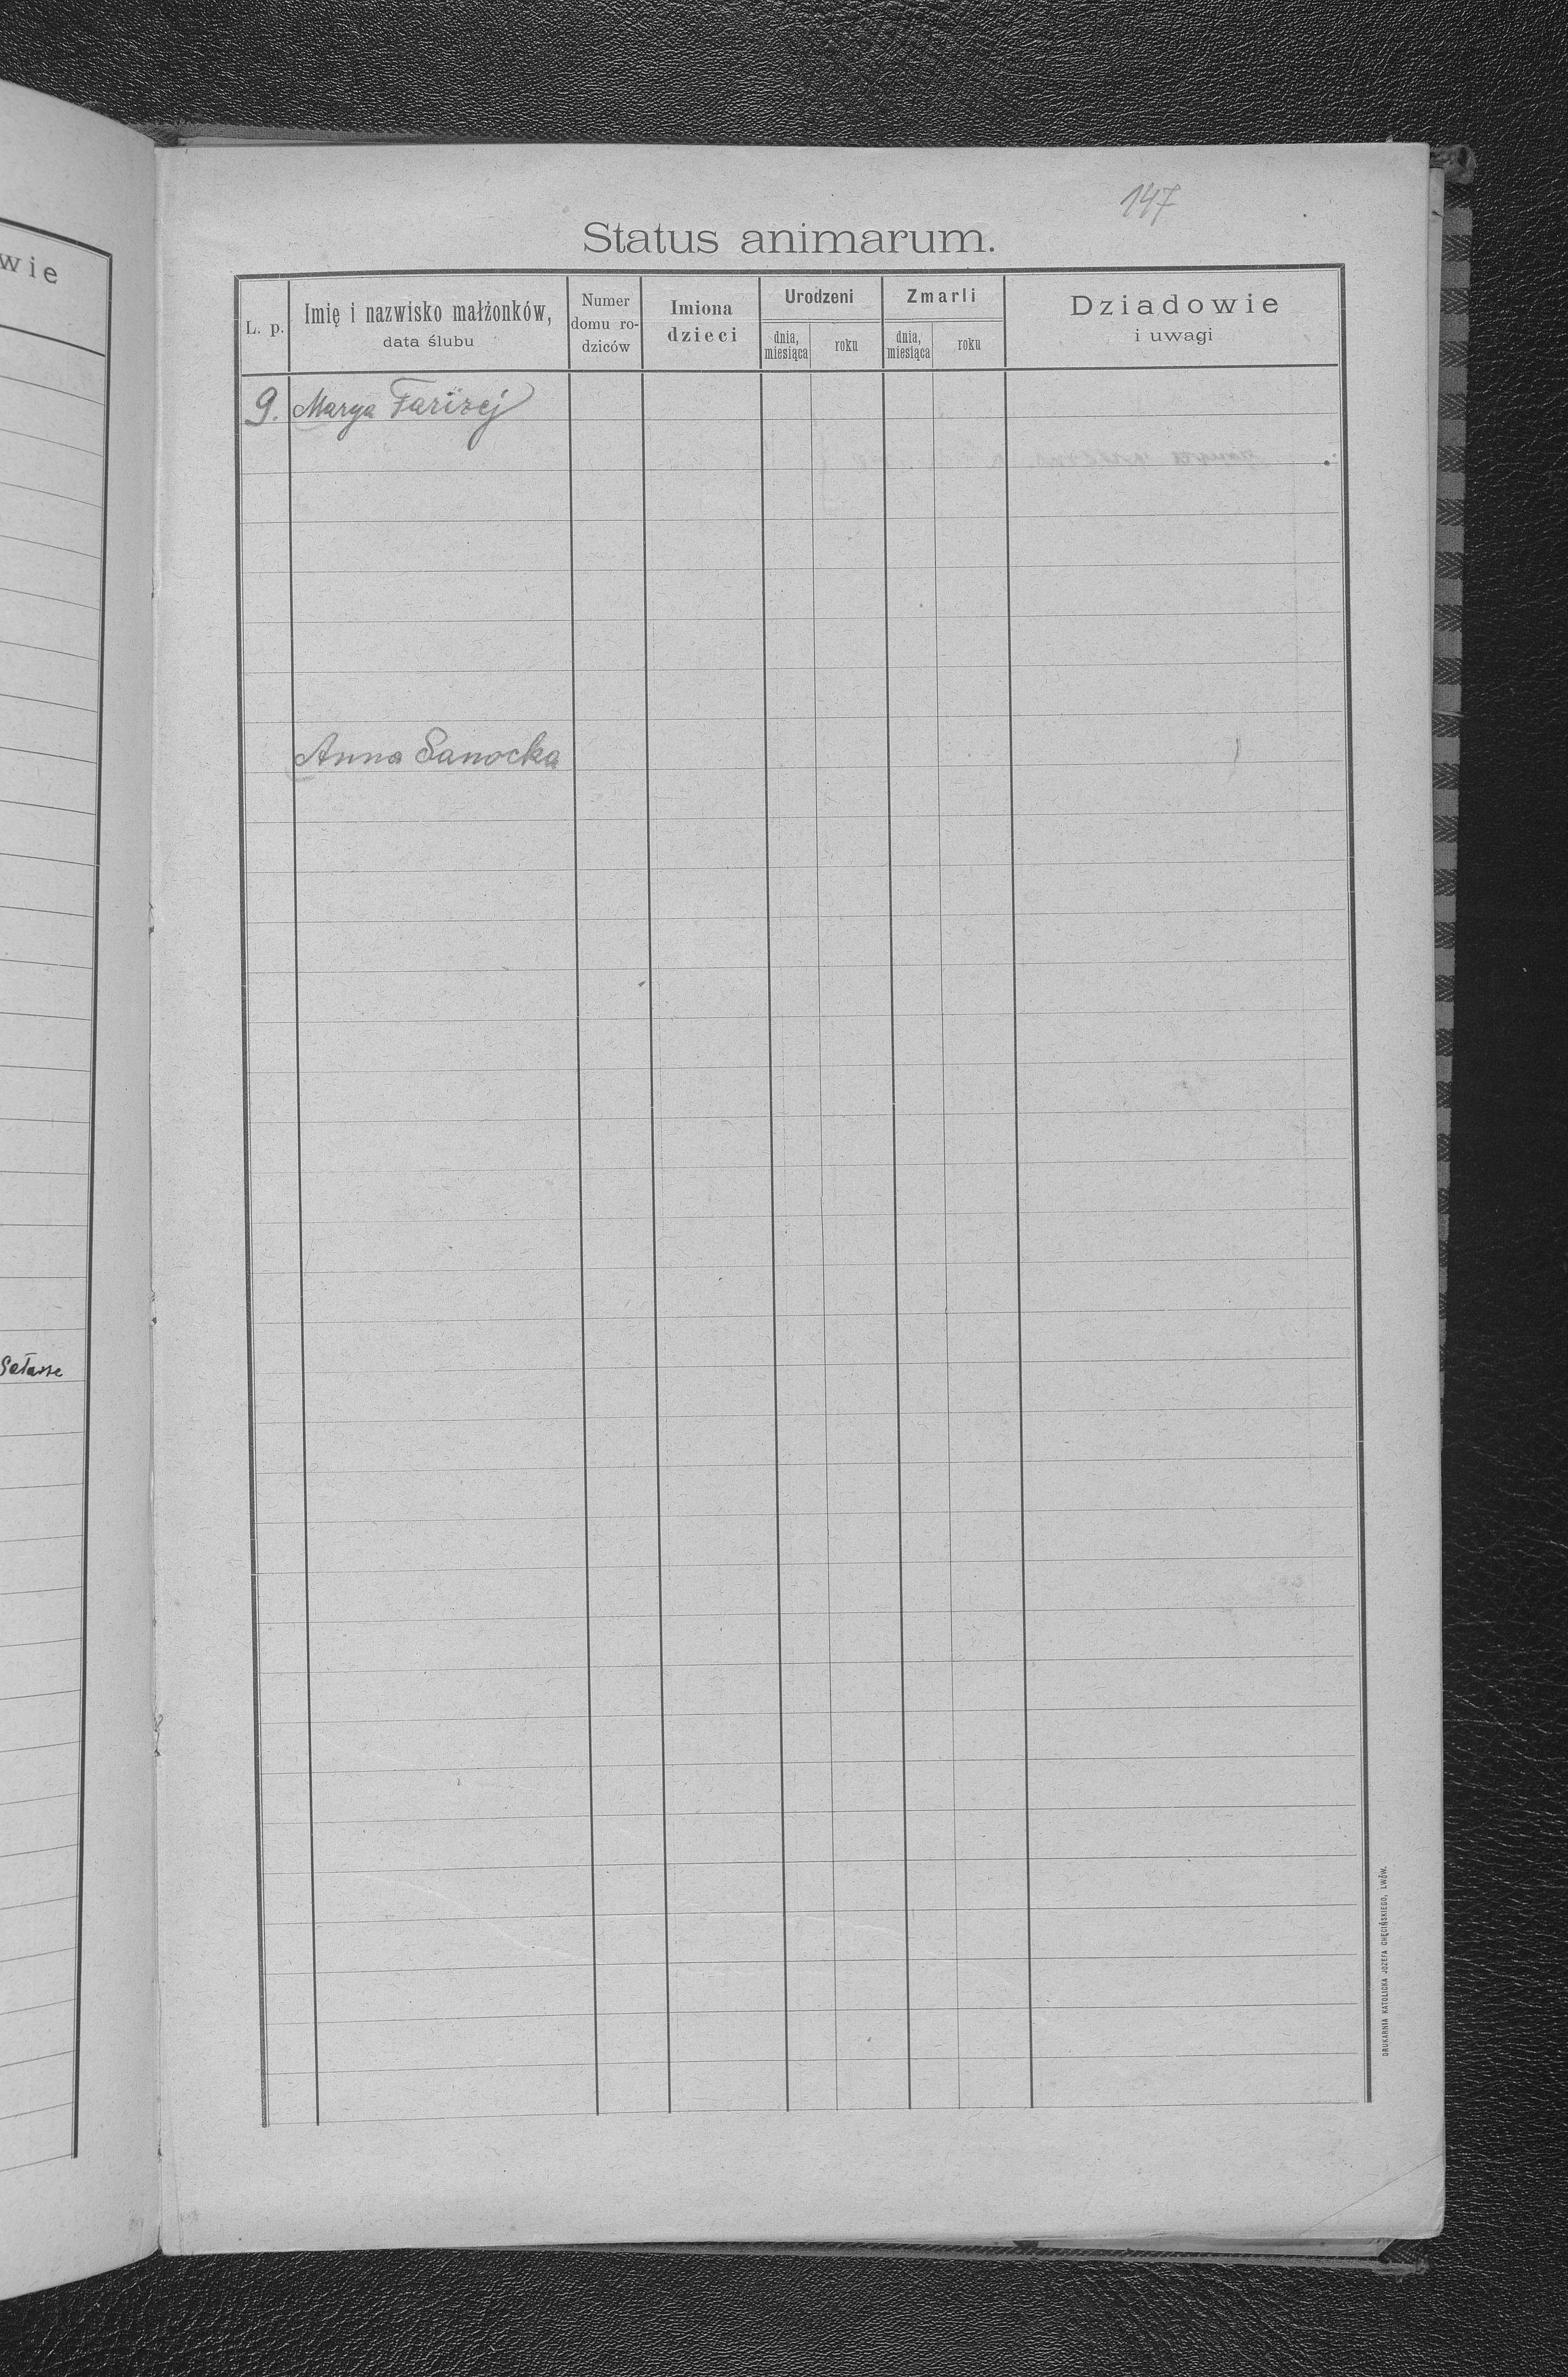 wie
Sałasse
147
Status animarum.
L. p.
Imię i nazwisko małżonków,
data ślubu
Numer
domu ro-
dziców
Imiona
dzieci
Urodzeni
dnia,
miesiąca
roku
Zmarli
dnia,
miesiąca
roku
Dziadowie
i uwagi
9. Marya Farizej
Anna Sanocka
DRUKARNIA KATOLICKA JOZEFA CHĘCIŃSKIEGO, LWÓW.